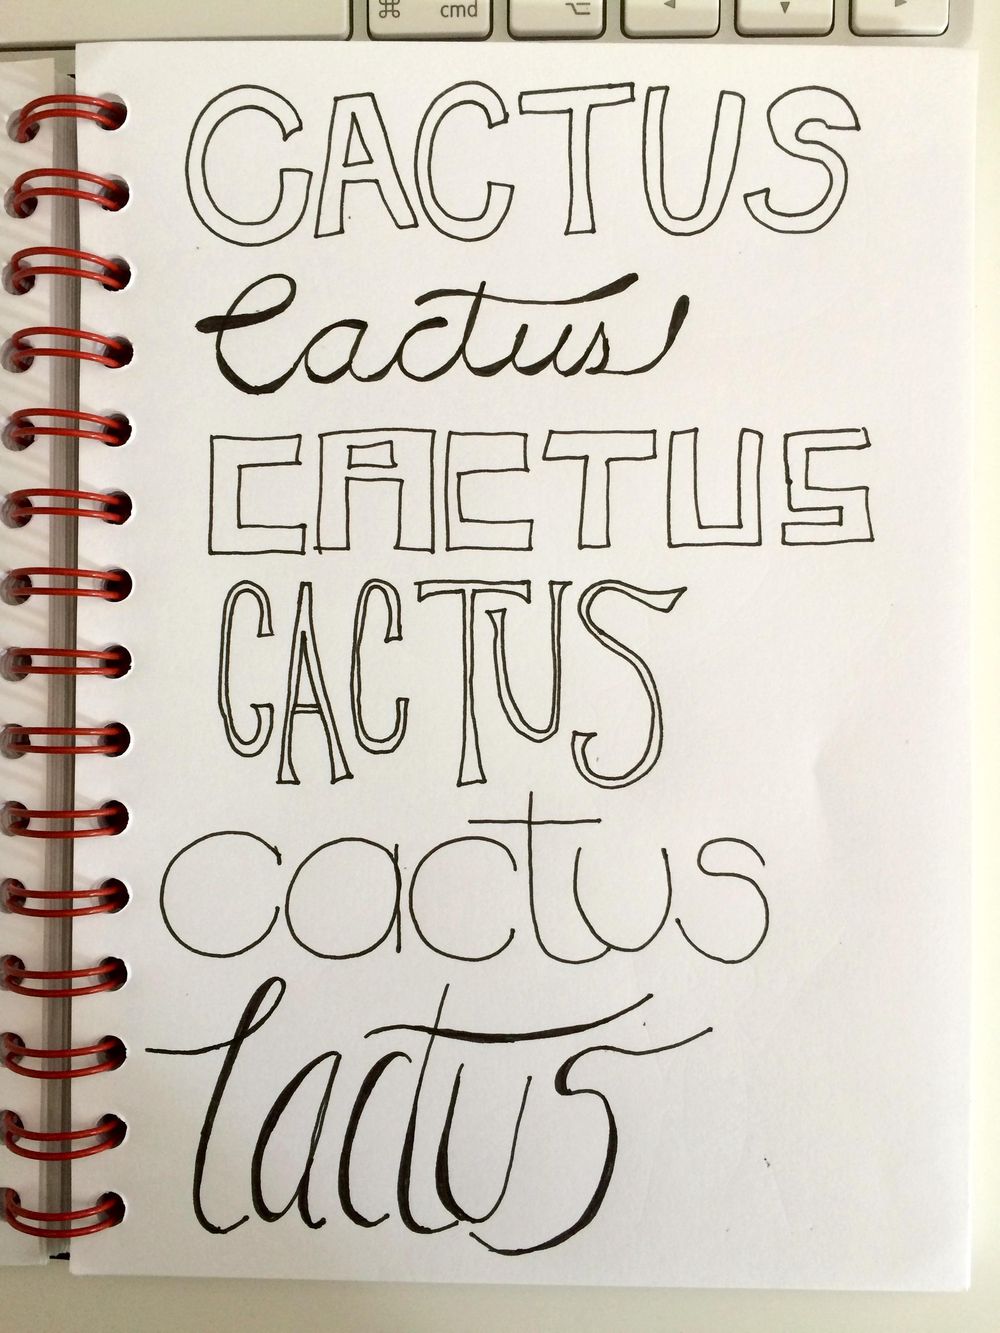 ⌘ cmd ⌥ ◂ ▾ ▸
CACTUS
Cactus
CACTUS
CACTUS
cactus
Cactus